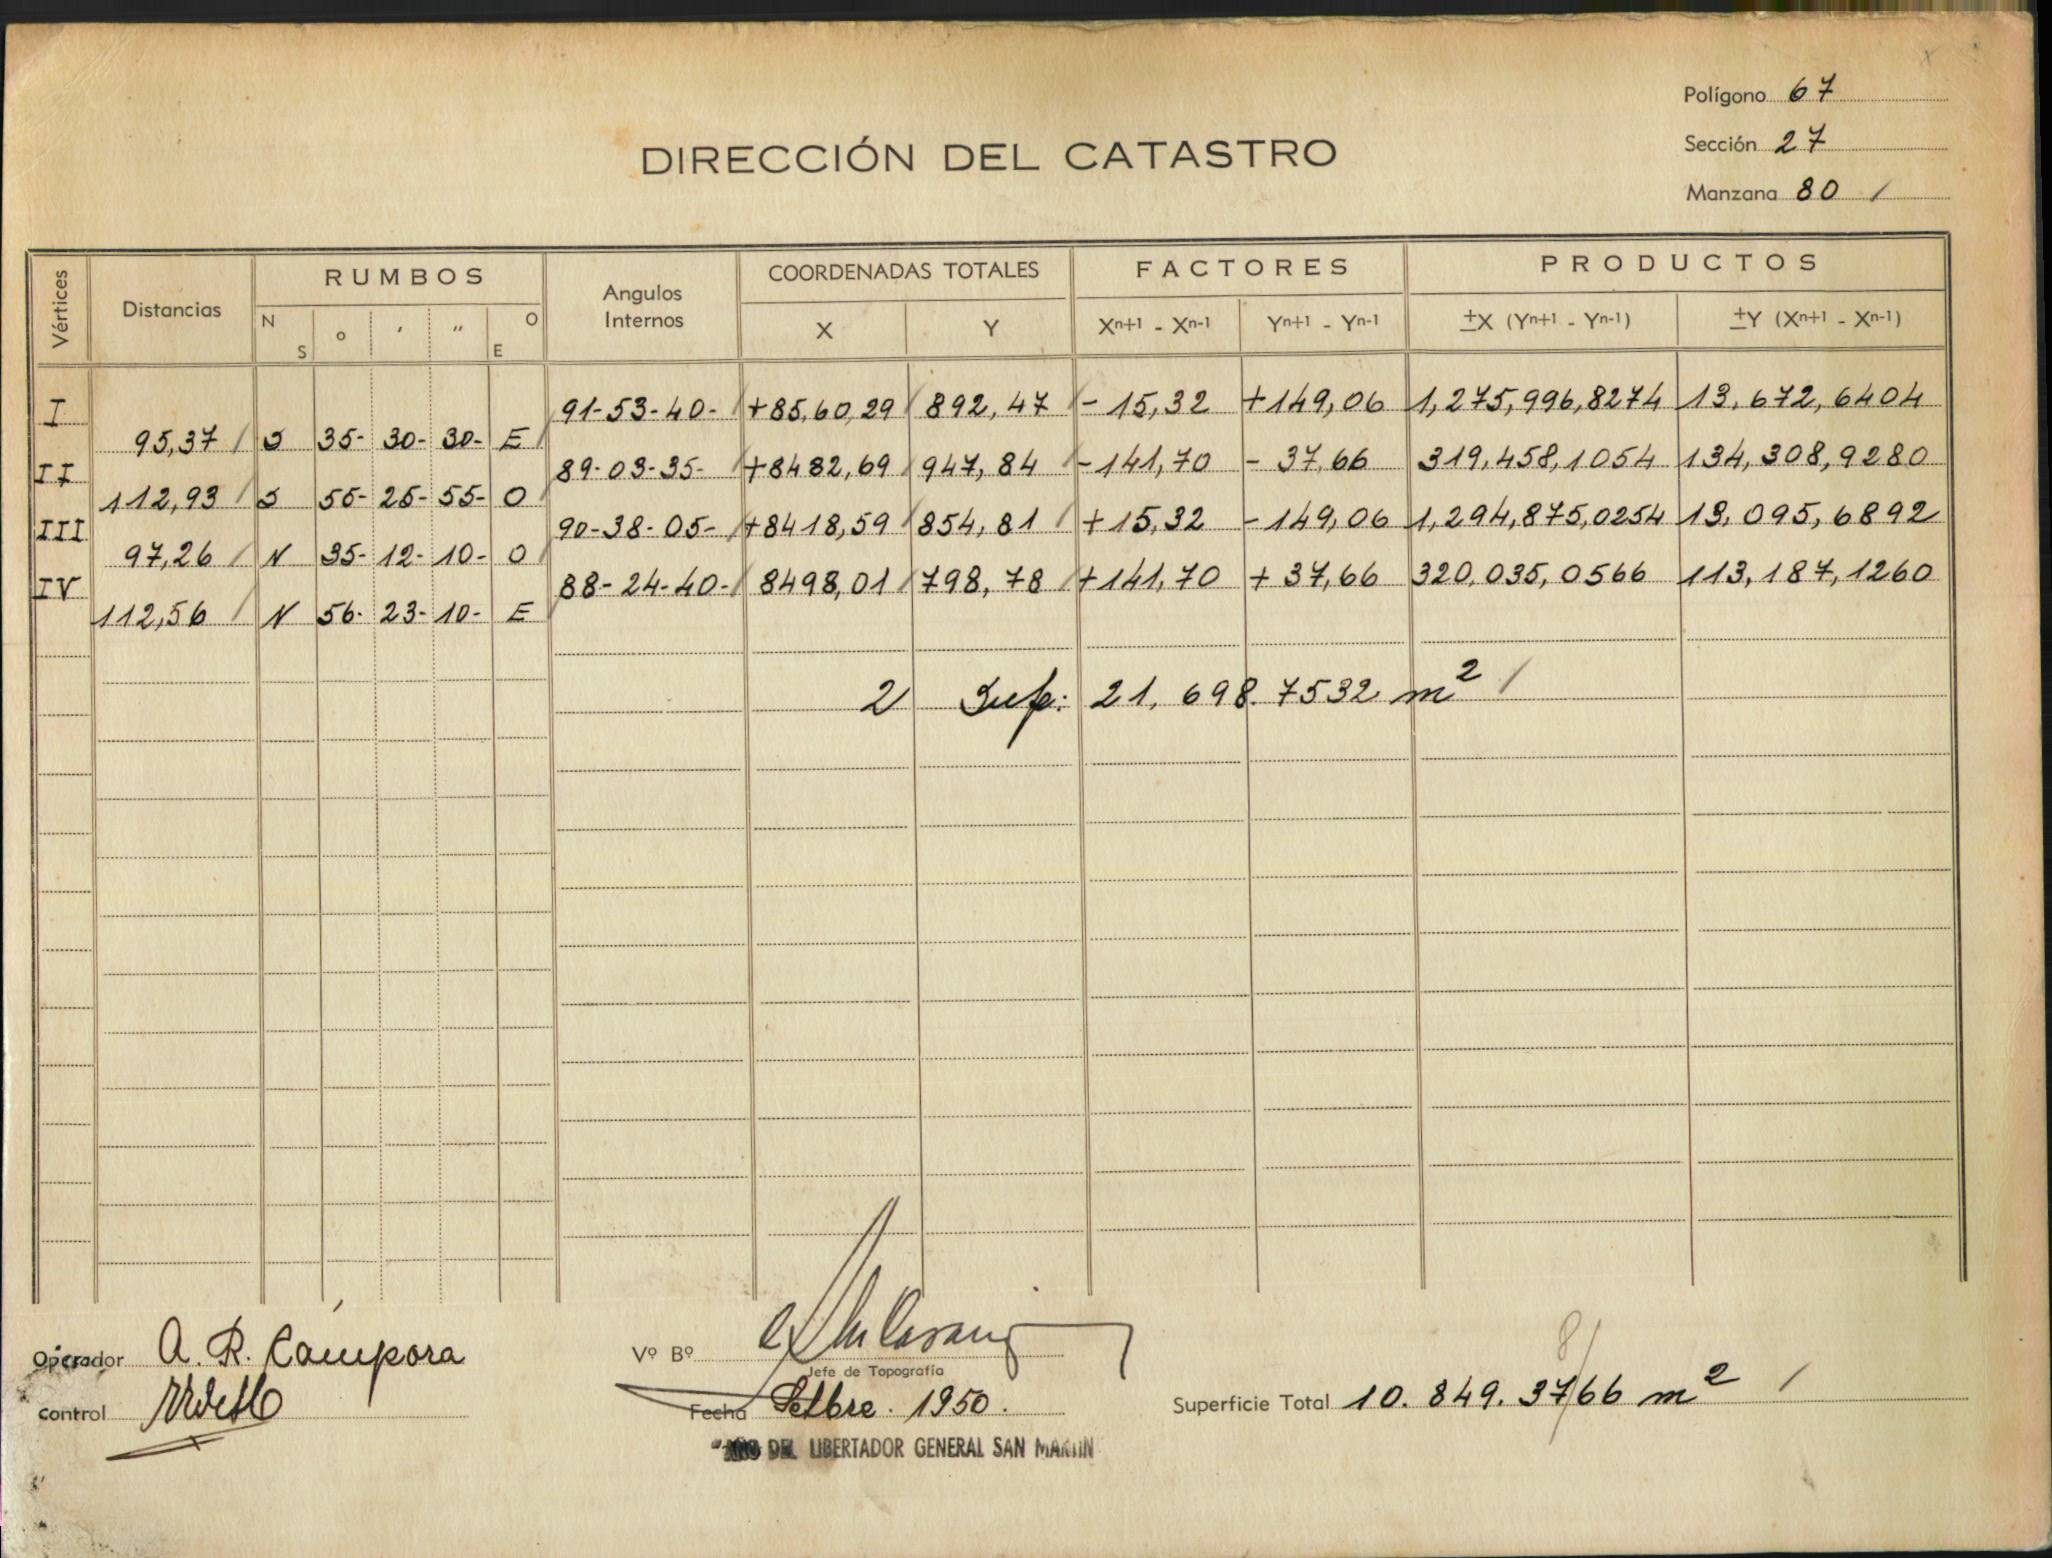 Polígono 67
Sección 27
Manzana 80 /
DIRECCIÓN DEL CATASTRO
Vértices Distancias RUMBOS Angulos Internos COORDENADAS TOTALES FACTORES PRODUCTOS
N S o ' " O E X Y Xn+1 - Xn-1 Yn+1 - Yn-1 ±X (Yn+1 - Yn-1) ±Y (Xn+1 - Xn-1)
I 91-53-40- +85,60,29 892,47 - 15,32 +149,06 1,275,996,8274 13.672,6404
95,37 S 35- 30- 30- E
II 89-03-35- +8482,69 947,84 -141,70 - 37,66 319.458,1054 134,308,9280
112,93 S 55- 25- 55- O
III 90-38-05- +8418,59 854,81 +15,32 -149,06 1,294,875,0254 13.095,6892
97,26 N 35- 12- 10- O
IV 88-24-40- 8498,01 798,78 +141,70 + 37,66 320.035,0566 113,187,1260
112,56 N 56- 23- 10- E
2 Sup: 21.698.7532 m2 /
Operador A. R. Cámpora
Control
Vº Bº
Jefe de Topografía
Fecha Setbre. 1950.
Superficie Total 10.849.3766 m2 /
8/
"AÑO DEL LIBERTADOR GENERAL SAN MARTIN